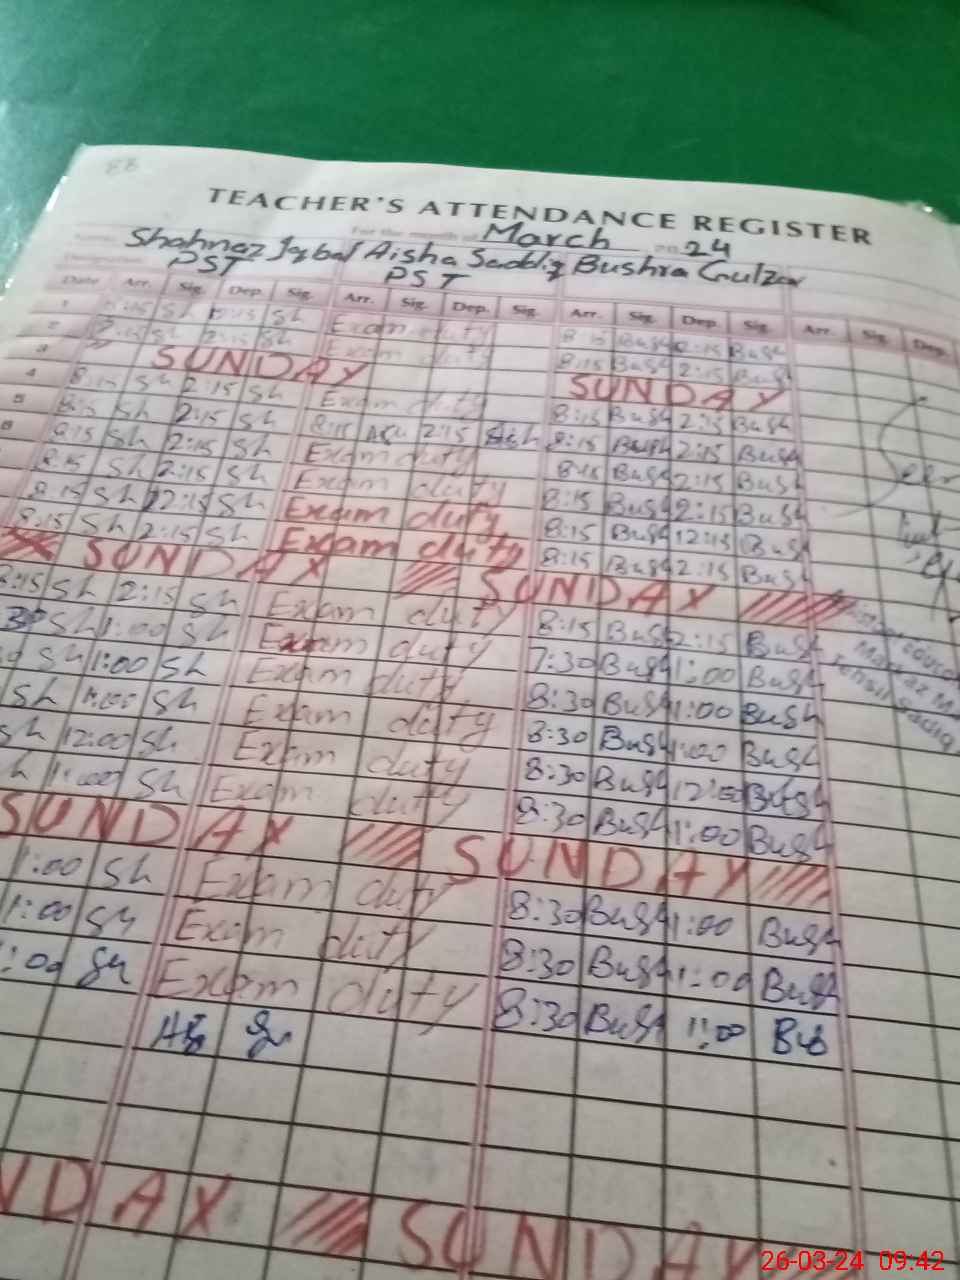 88
TEACHER'S ATTENDANCE REGISTER
For the month of March 2024
Shahnaz Iqbal Aisha Saddiq Bushra Gulzar
PST PST
Date Arr. Sig. Dep. Sig. Arr. Sig. Dep. Sig. Arr. Sig. Dep. Sig. Arr. Sig. Dep.
1 8:15 Sh 12:15 Sh Exam duty 8:15 Bush 12:15 Bush
2 8:15 Sh 2:15 Sh Exam duty 8:15 Bush 2:15 Bush
3 SUNDAY SUNDAY
4 8:15 Sh 2:15 Sh Exam duty 8:15 Bush 2:15 Bush
5 8:15 Sh 2:15 Sh 8:15 Ash 2:15 Ash 8:15 Bush 2:15 Bush
6 8:15 Sh 2:15 Sh Exam duty 8:15 Bush 2:15 Bush
8:15 Sh 2:15 Sh Exam duty 8:15 Bush 2:15 Bush
8:15 Sh 12:15 Sh Exam duty 8:15 Bush 12:15 Bush
8:15 Sh 2:15 Sh Exam duty 8:15 Bush 2:15 Bush
SUNDAY SUNDAY
8:15 Sh 2:15 Sh Exam duty 8:15 Bush 2:15 Bush
Sh 1:00 Sh Exam duty 7:30 Bush 1:00 Bush
Sh 1:00 Sh Exam duty 8:30 Bush 1:00 Bush
Sh 1:00 Sh Exam duty 8:30 Bush 1:00 Bush
Sh 12:00 Sh Exam duty 8:30 Bush 12:00 Bush
1:00 Sh Exam duty 8:30 Bush 1:00 Bush
SUNDAY SUNDAY
1:00 Sh Exam duty 8:30 Bush 1:00 Bush
1:00 Sh Exam duty 8:30 Bush 1:00 Bush
:00 Sh Exam duty 8:30 Bush 1:00 Bus
NDAY SUNDAY
26-03-24 09:42